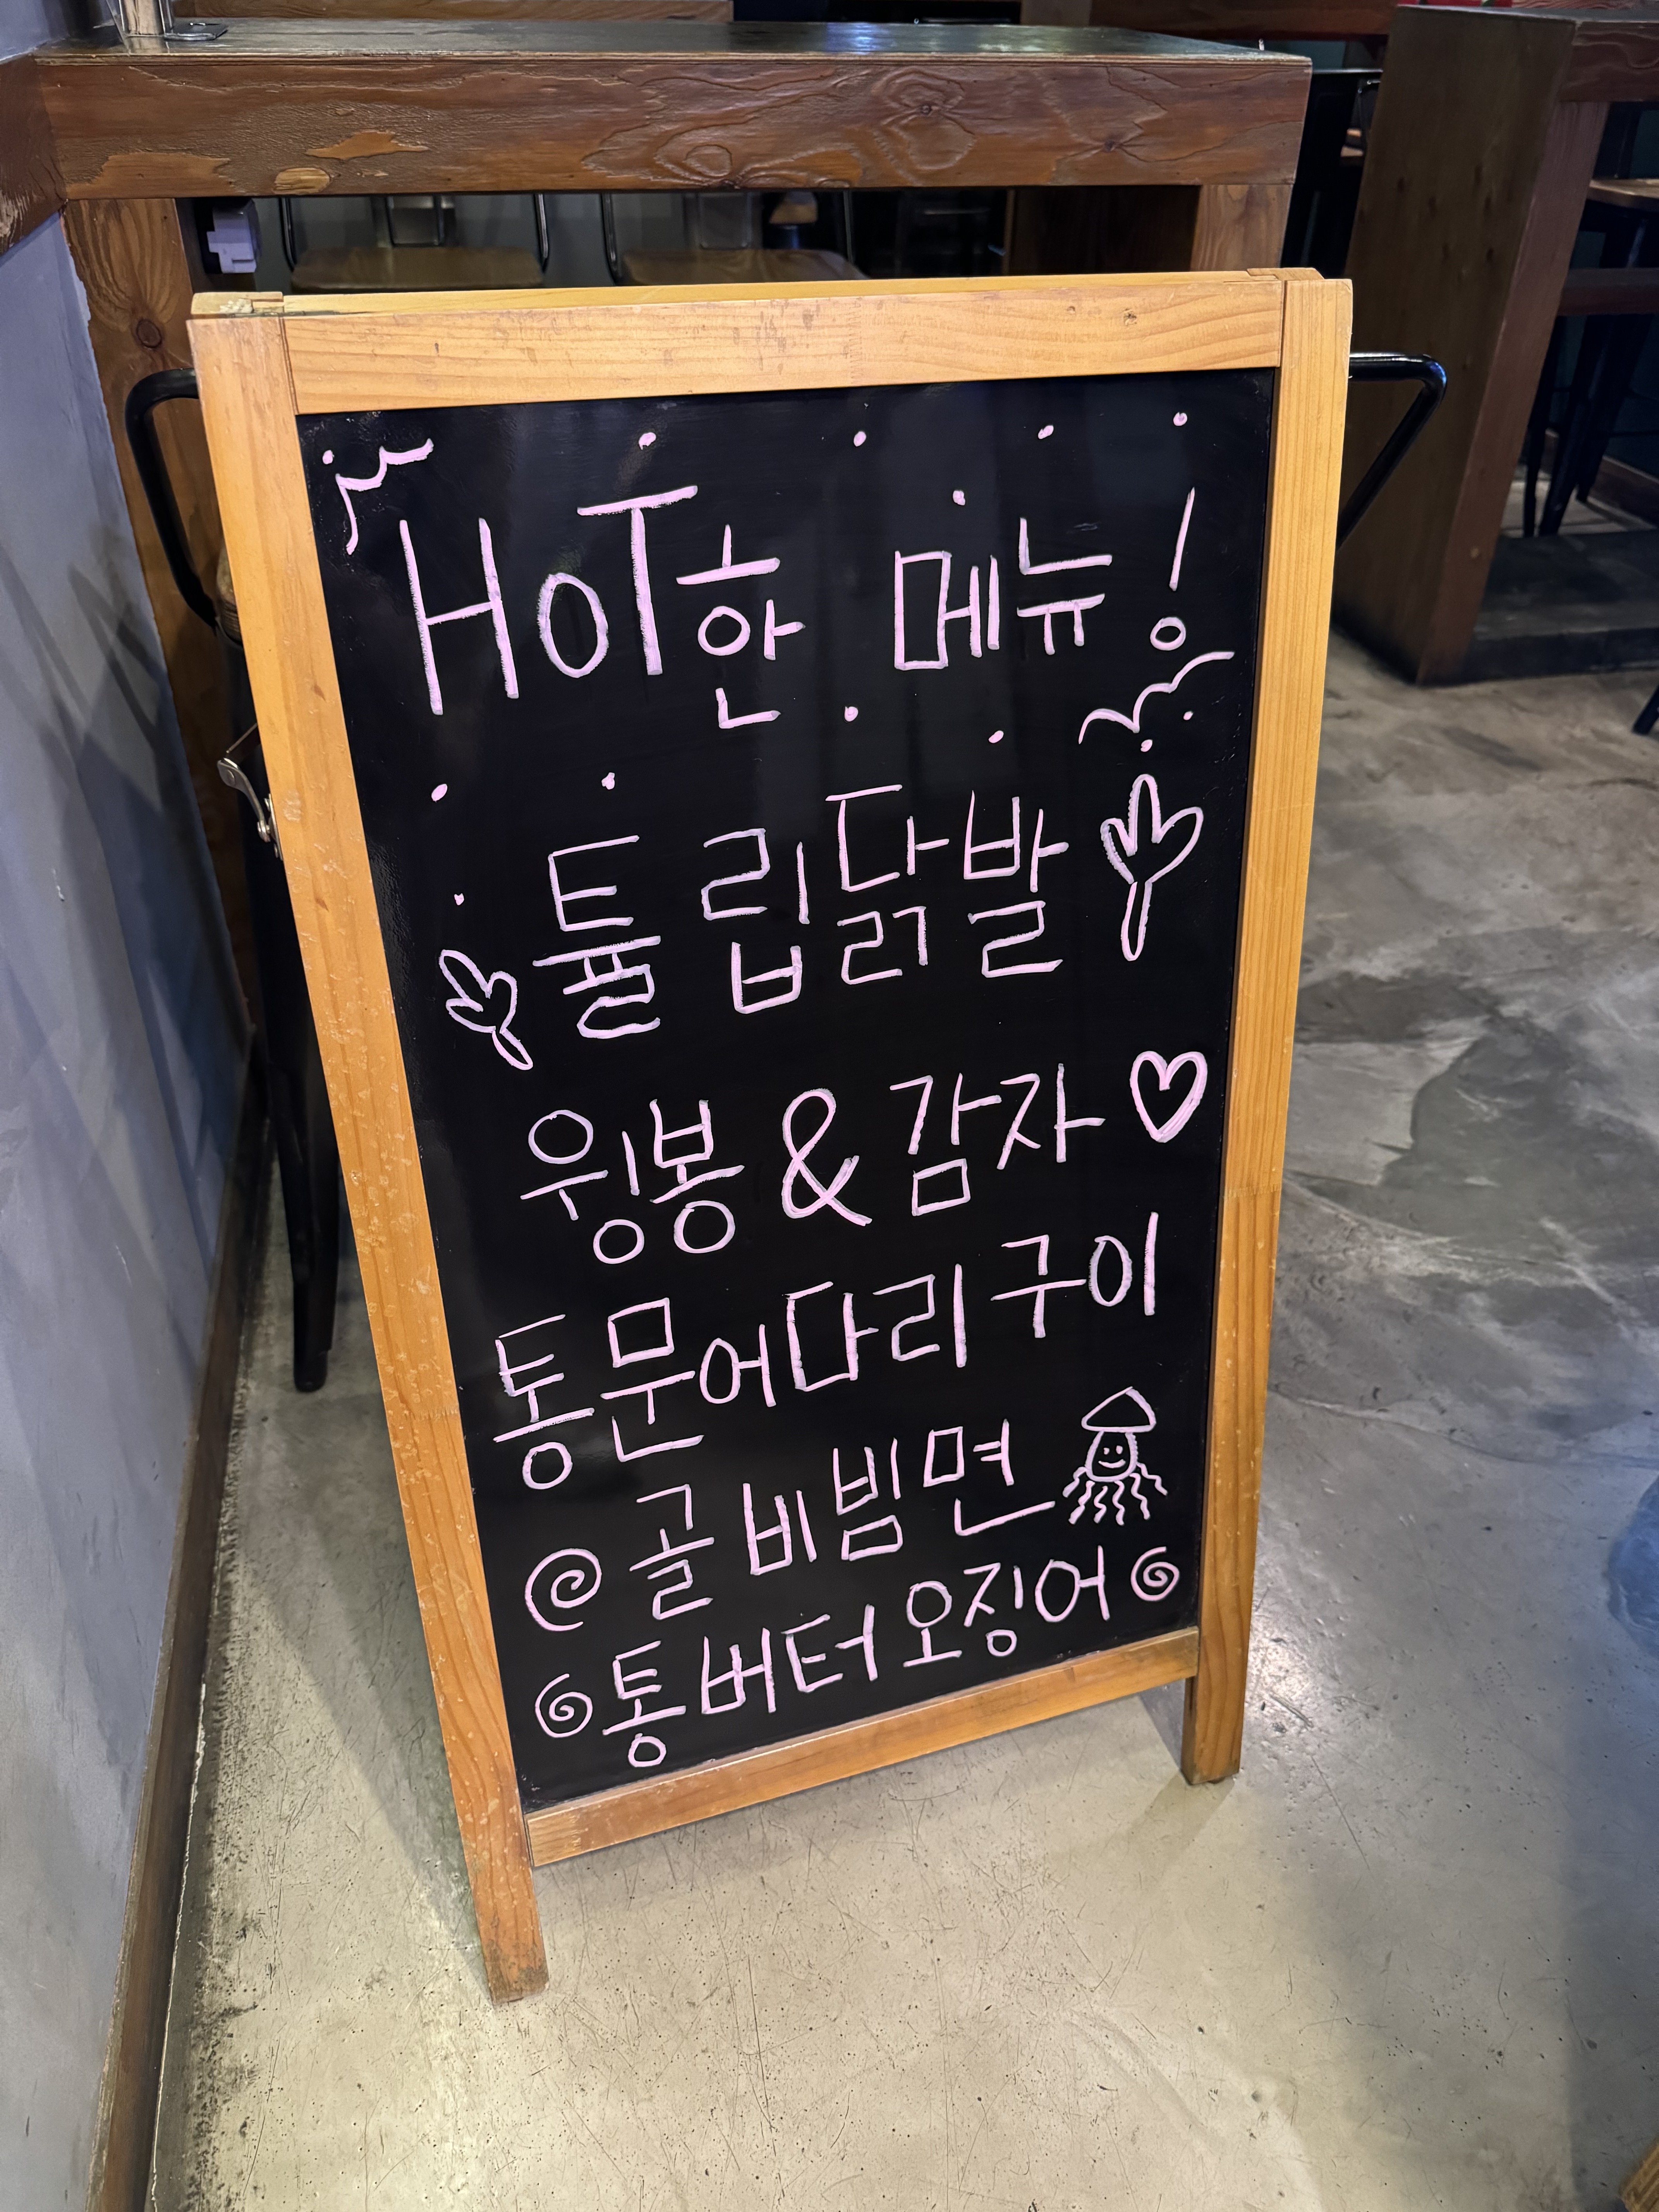 HOT한 메뉴!
튤립닭발
윙봉 & 감자
통문어다리구이
골비빔면
통버터오징어